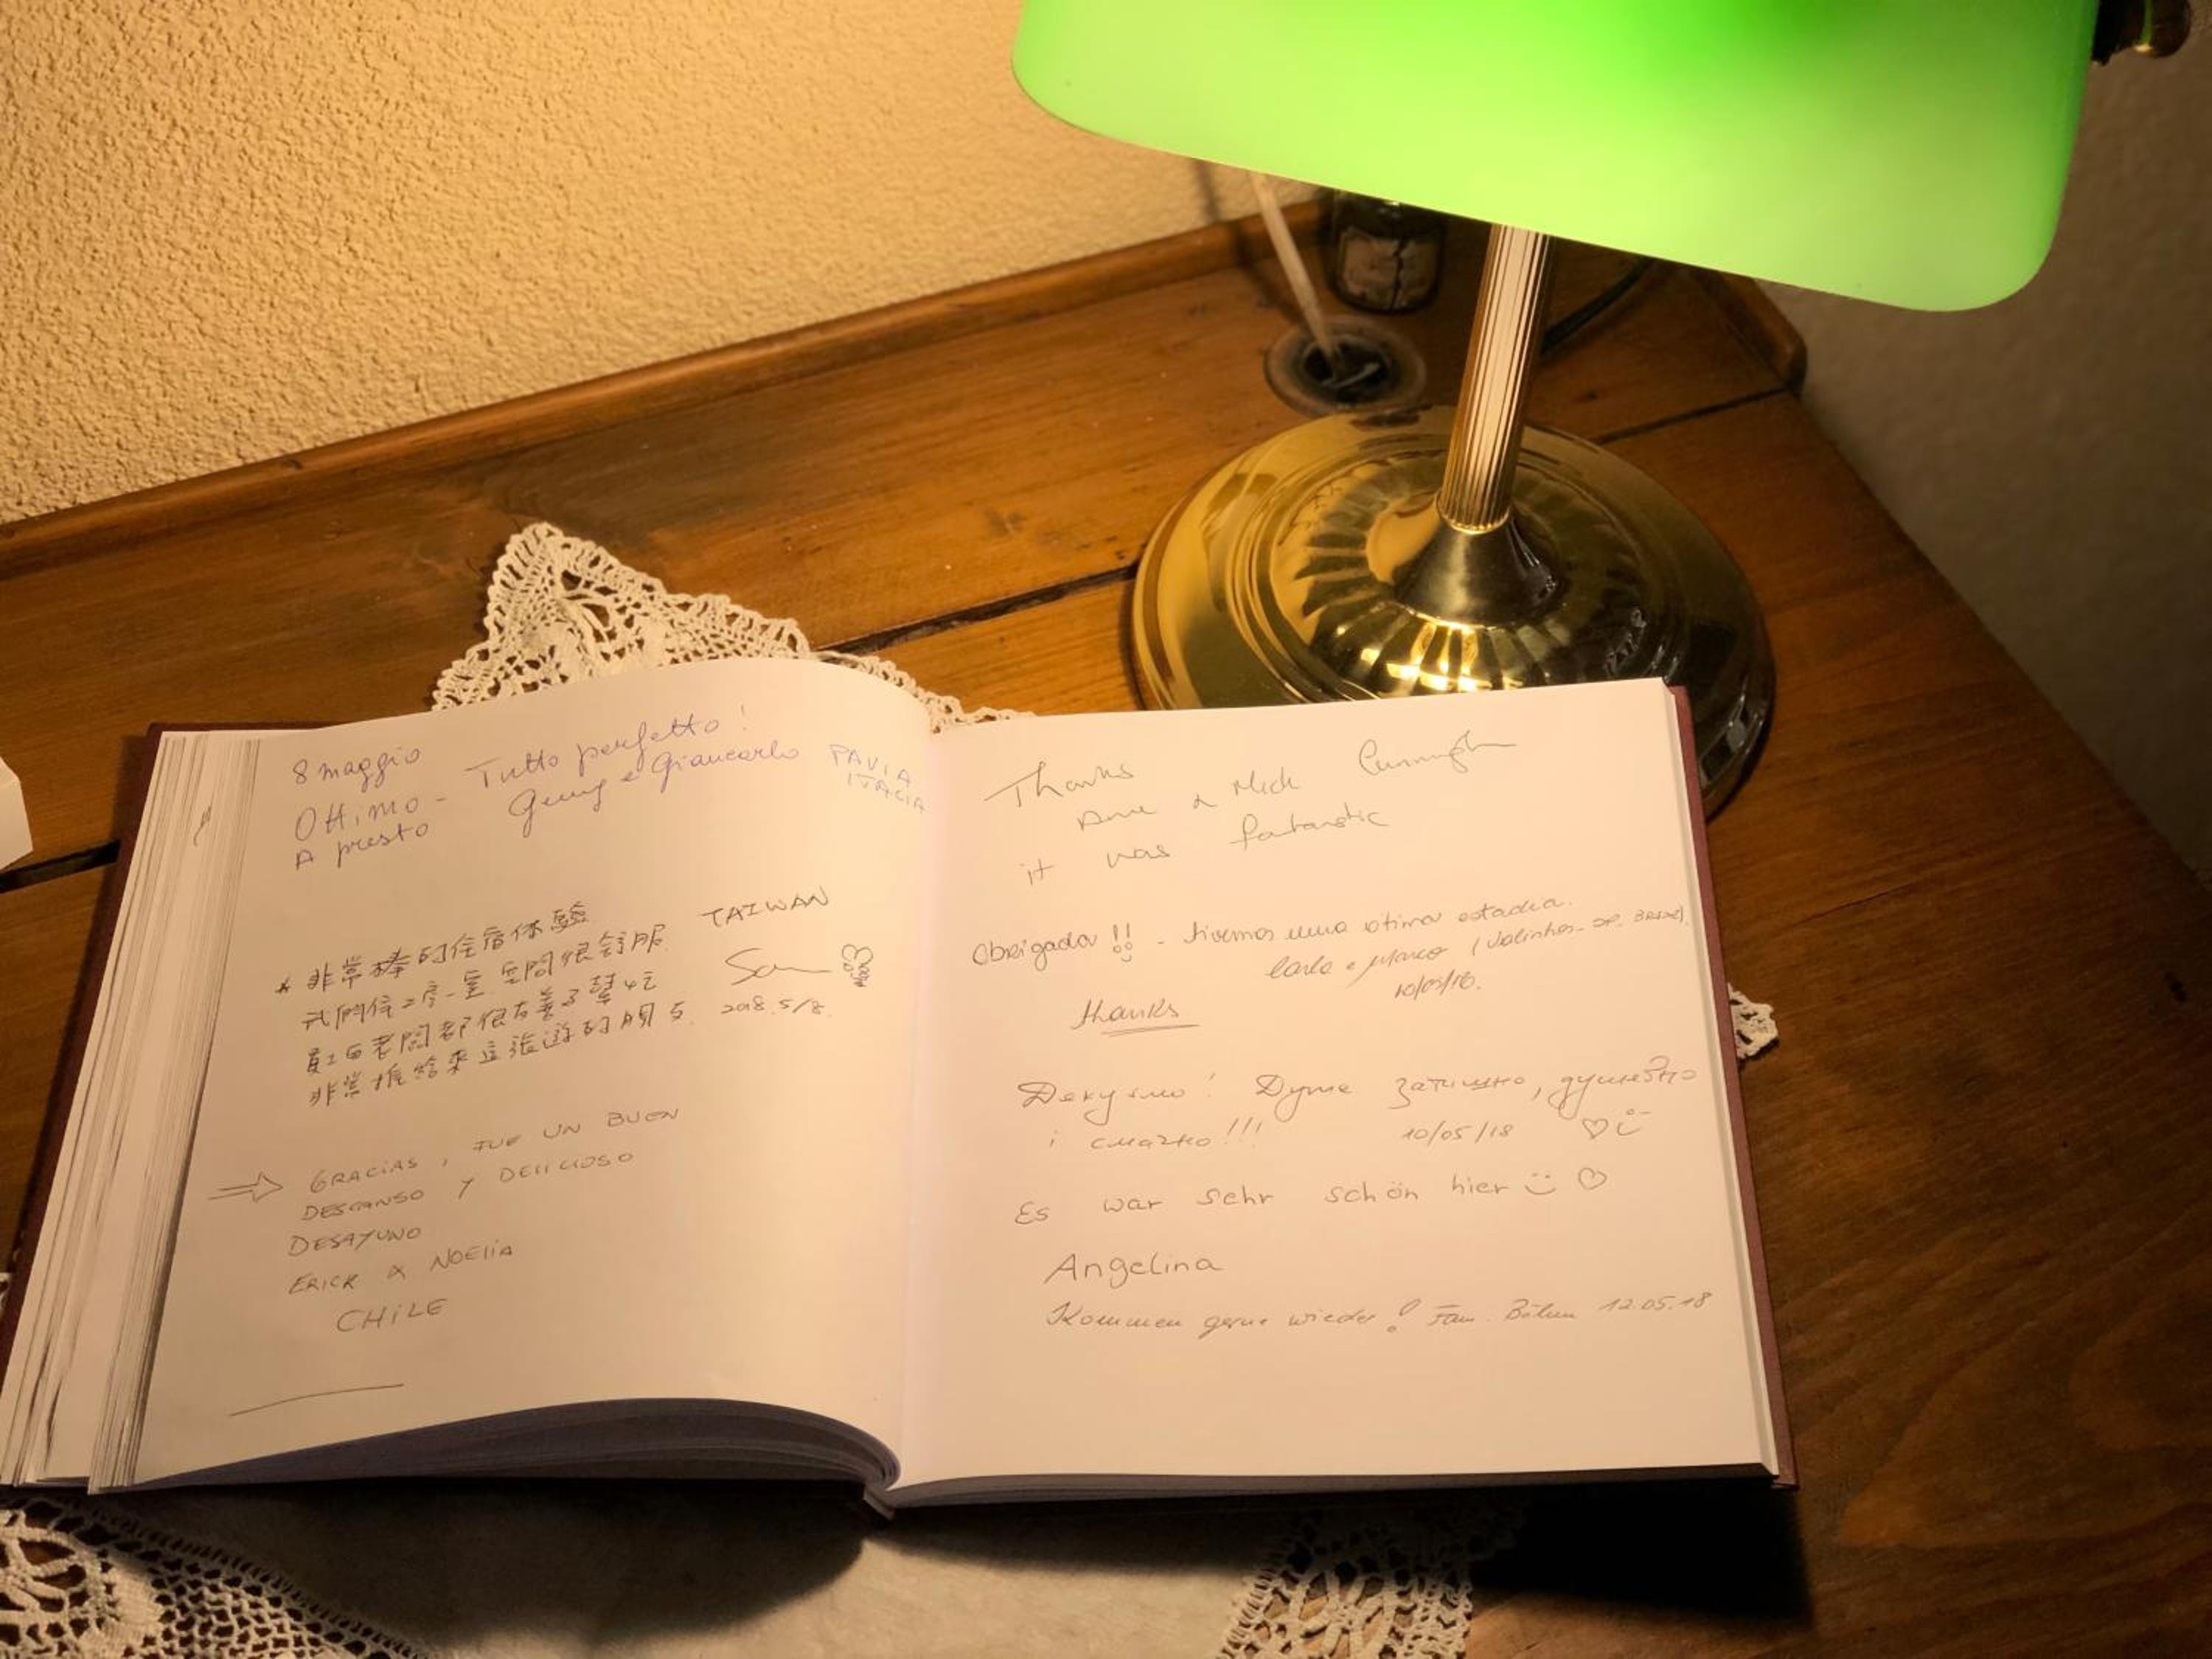 8 maggio
Ottimo - Tutto perfetto!
A presto Giusy e Giancarlo PAVIA
ITALIA
* 非常棒的住宿体驗 TAIWAN
我們住2房一室.空間很舒服.
員工自老闆都很友善3幫忙 2018.5/8.
非常推給來這旅遊的朋友.
GRACIAS, FUE UN BUEN
DESCANSO Y DELICIOSO
DESAYUNO
ERICK & NOELIA
CHILE
Thanks
& Mick
it was fantastic
Obrigada!! - tivemos uma ótima estadia.
Carla e Marco (Valinhos - SP. BRASIL).
thanks
Дякуємо! Дуже затишно, душевно
і смачно!!! 10/05/18
Es war sehr schön hier
Angelina
Kommen gerne wieder! Fam. 12.05.18